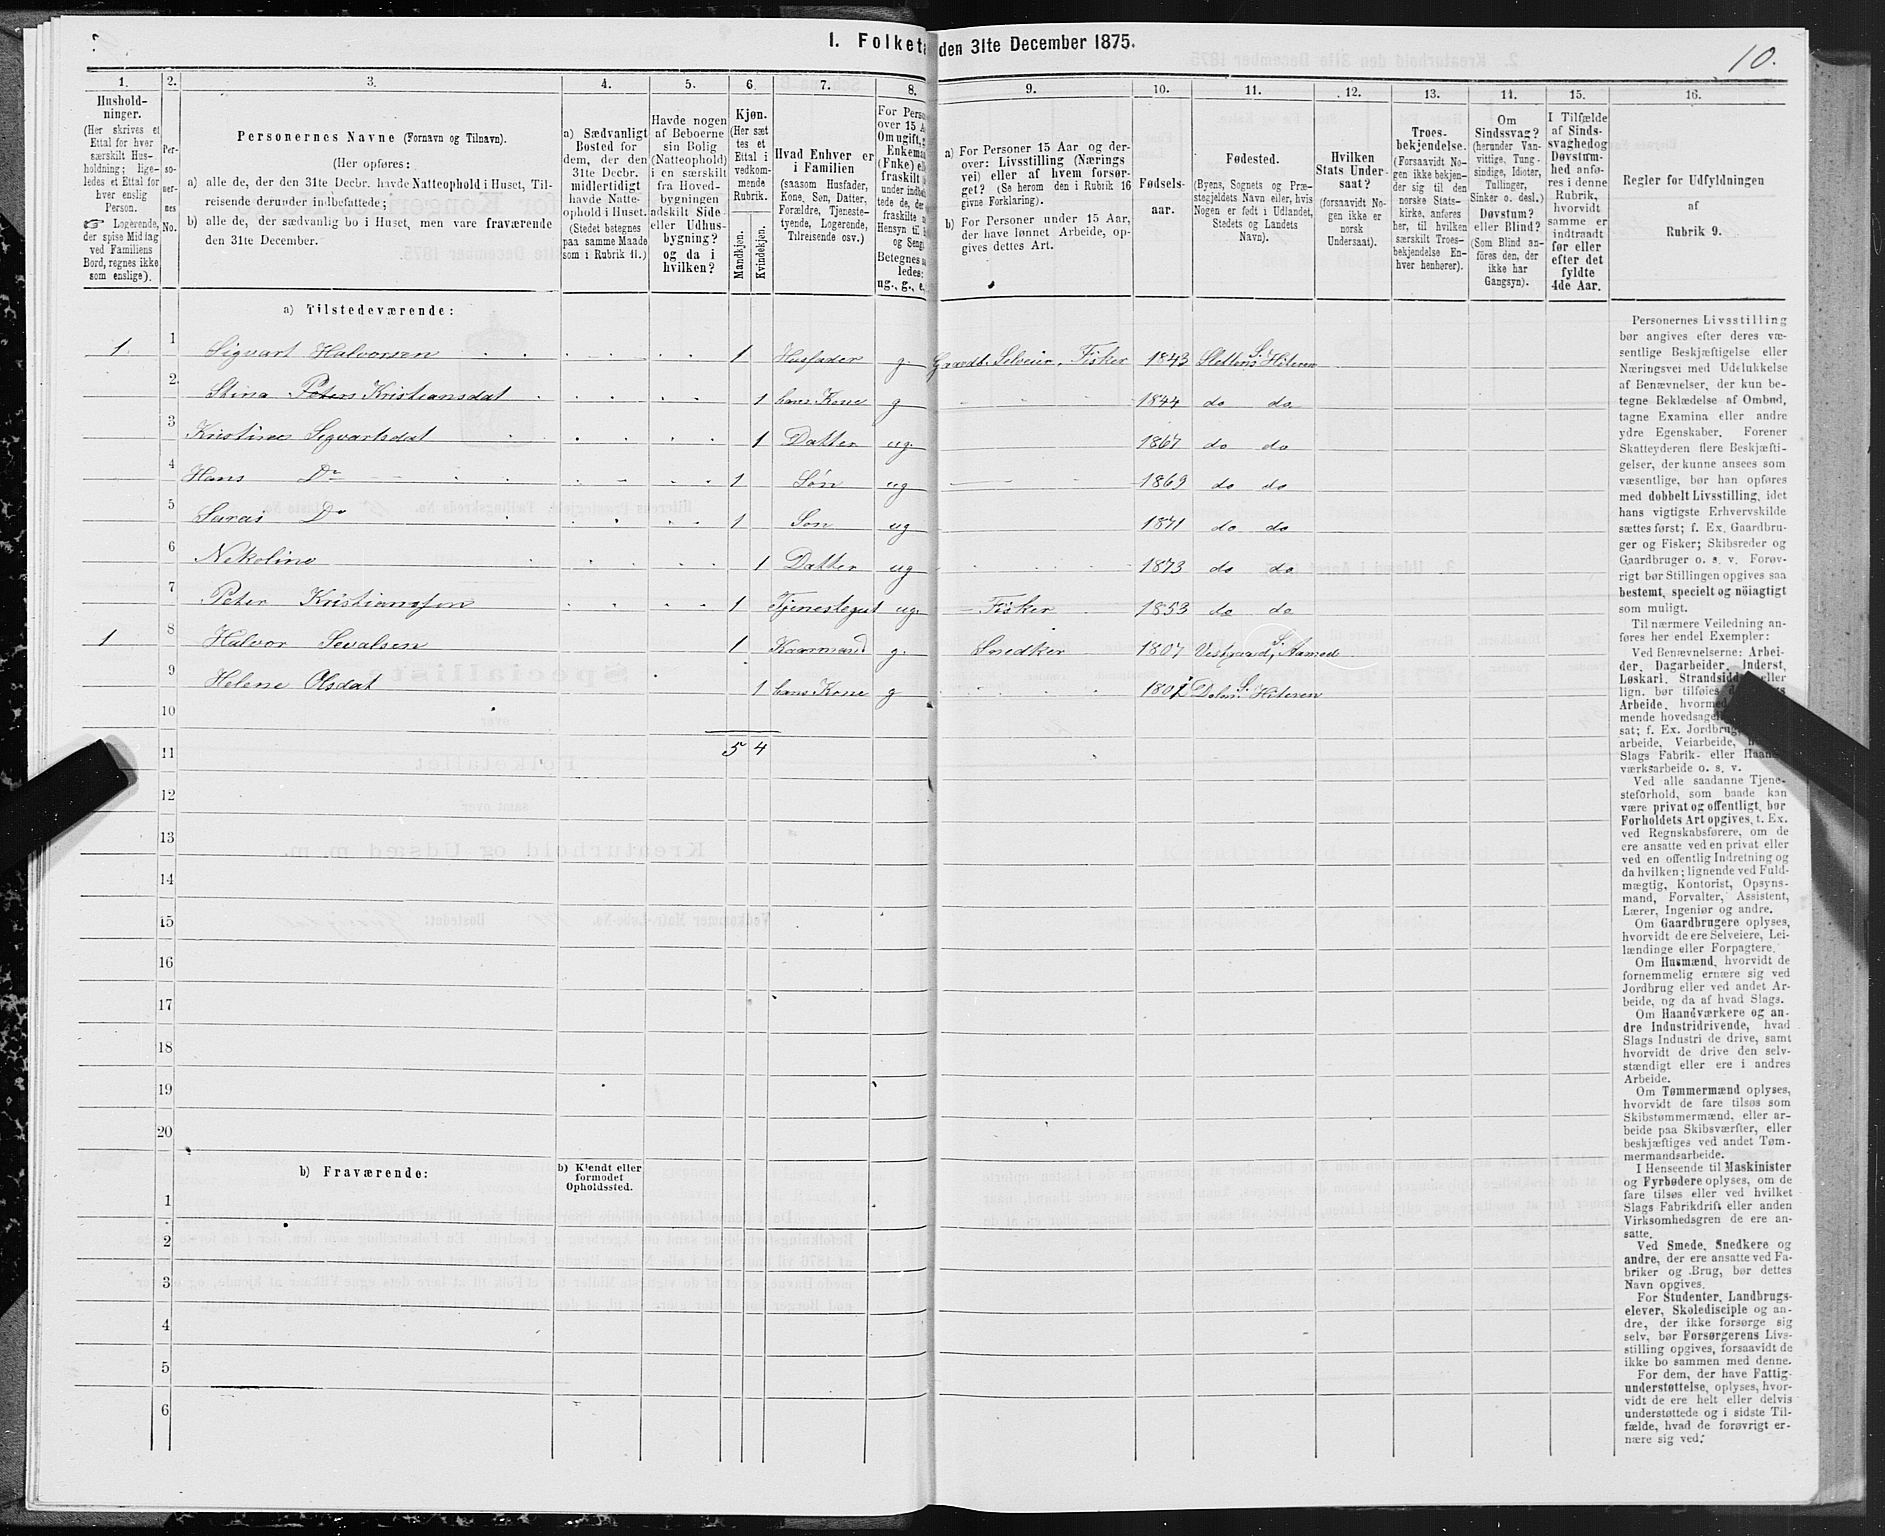 1. Folketa den 31te December 1875.
10.
1.
2.
3.
4.
5.
6.
7.
8.
9.
10.
11.
12.
13.
14.
15.
16.
Hushold-
ninger.
(Her skrives et
Ettal for hver
særskilt Hus-
holdning; lige-
ledes et Ettal for
hver enslig
Person.
Logerende,
der spise Middag
ved Familiens
Bord, regnes ikke
som enslige).
Per-
so-
ner-
nes
No.
Personernes Navne (Fornavn og Tilnavn).
(Her opføres:
a) alle de, der den 31te Decbr. havde Natteophold i Huset, Til-
reisende derunder indbefattede;
b) alle de, der sædvanlig bo i Huset, men vare fraværende
den 31te December.
a) Sædvanligt
Bosted for
dem, der den
31te Decbr.
midlertidigt
havde Natte-
ophold i Huset.
(Stedet betegnes
paa samme Maade
som i Rubrik 11.)
Havde nogen
af Beboerne
sin Bolig
(Natteophold)
i en særskilt
fra Hoved-
bygningen
adskilt Side-
eller Udhus-
bygning?
og da i
hvilken?
Kjøn.
(Her sæt-
tes et
Ettal i
vedkom-
mende
Rubrik.
Mandkjøn.
Kvindekjøn.
Hvad Enhver er
i Familien
(saasom Husfader,
Kone, Søn, Datter,
Forældre, Tjeneste-
tyende, Logerende,
Tilreisende osv.)
For Perso
over 15 A
Om ugift, g
Enkeman
(Enke) ell
fraskilt
under indbe
tede de, der
fraskilte
Hensyn til
og Seng.
Betegnes s
ledes:
ug., g., e.,
a) For Personer 15 Aar og der-
over: Livsstilling (Nærings
vei) eller af hvem forsør-
get? (Se herom den i Rubrik 16
givne Forklaring).
b) For Personer under 15 Aar,
der have lønnet Arbeide, op-
gives dettes Art.
Fødsels-
aar.
Fødested.
(Byens, Sognets og Præ-
stegjeldets Navn eller, hvis
Nogen er født i Udlandet,
Stedets og Landets
Navn).
Hvilken
Stats Under-
saat?
(forsaavidt No-
gen ikke er
norsk
Undersaat).
Troes-
bekjendelse.
(Forsaavidt No-
gen ikke bekjen-
der sig til den
norske Stats-
kirke, anføres
her, til hvilken
særskilt Troes-
bekjendelse En-
hver henhører).
Om
Sindssvag?
(herunder Van-
vittige, Tung-
sindige, Idioter,
Tullinger,
Sinker o. desl.)
Døvstum?
eller Blind?
(Som Blind an-
føres den, der
ikke har
Gangsyn).
I Tilfælde
af Sinds-
svaghed og
Døvstum-
hed anfø-
res i denne
Rubrik,
hvorvidt
samme er
indtraadt
før eller
efter det
fyldte
4de Aar.
Regler for Udfyldningen
af
Rubrik 9.
a) Tilstedeværende:
1 1 Sigvart Halvorsen 1 Husfader g. Gaardb. Selveier, Fisker 1843 Sletten, S. Hiteren
2. Stina Peters Kristiansdat 1 hans Kone g 1844 do do
3 Kristine Sigvartsdat 1 Datter ug. 1867 do do
4 Hans Do 1 Søn ug 1869 do do
5 Do 1 Søn ug 1871 do do
6 Nekoline 1 Datter ug 1873 do do
7 Peter Kristiansen 1 Tjenestegut ug. Fisker 1853 do do
1 8 Halvor Sevalsen 1 Kaarmand g. Snedker 1807 S.
9 Helene Olsdat 1 hans Kone g S. Hiteren
10
11 5 4
12
13
14
15
16
17
18
19
20
b) Fraværende:
b) Kjendt eller
formodet
Opholdssted.
1
2
3
4
5
6
Personernes Livsstilling
bør angives efter deres væ-
sentlige Beskjæftigelse eller
Næringsvei med Udelukkelse
af Benævnelser, der kun be-
tegne Beklædelse af Ombud,
tagne Examina eller andre
ydre Egenskaber. Forener
Skatteyderen flere Beskjæfti-
gelser, der kunne ansees som
væsentlige, bør han opføres
med dobbelt Livsstilling, idet
hans vigtigste Erhvervskilde
sættes først; f. Ex. Gaardbru-
ger og Fisker; Skibsreder og
Gaardbruger o. s. v. Forøv-
rigt bør Stillingen opgives saa
bestemt, specielt og nöiagtigt
som muligt.
Til nærmere Veiledning an-
føres her endel Exempler:
Ved Benævnelserne: Arbei-
der, Dagarbeider, Inderst,
Løskarl, Strandsidd eller
lign. bør tilføies
Arbeide, hvormed
mende hovedsagel
sat; f. Ex. Jordbrug
arbeide, Veiarbeide,
Slags Fabrik- eller Haand-
værksarbeide o. s. v.
Ved alle saadanne Tjene-
steforhold, som baade kan
være privat og offentligt, bør
Forholdets Art opgives, t. Ex.
ved Regnskabsførere, om de
ere ansatte ved en privat eller
ved en offentlig Indretning og
da hvilken; lignende ved Fuld-
mægtig, Kontorist, Opsyns-
mand, Forvalter, Assistent,
Lærer, Ingeniør og andre.
Om Gaardbrugere oplyses,
hvorvidt de ere Selveiere, Lei-
lændinge eller Forpagtere.
Om Husmænd, hvorvidt de
fornemmelig ernære sig ved
Jordbrug eller ved andet Ar-
beide, og da af hvad Slags.
Om Haandværkere og an-
dre Industridrivende, hvad
Slags Industri de drive, samt
hvorvidt de drive den selv-
stændigt eller ere i andres
Arbeide.
Om Tømmermænd oplyses,
hvorvidt de fare tilsøs som
Skibstømmermænd, eller ar-
beide paa Skibsværfter, eller
beskjæftiges ved andet Tøm-
mermandsarbeide.
I Henseende til Maskinister
og Fyrbødere oplyses, om de
fare tilsøs eller ved hvilket
Slags Fabrikdrift eller anden
Virksomhedsgren de ere an-
satte.
Ved Smede, Snedkere og
andre, der ere ansatte ved Fa-
briker og Brug, bør dettes
Navn opgives.
For Studenter, Landbrugs-
elever, Skoledisciple og an-
dre, der ikke forsørge sig
selv, bør Forsørgerens Livs-
stilling opgives, forsaavidt de
ikke bo sammen med denne.
For dem, der have Fattig-
understøttelse, oplyses, hvor-
vidt de ere helt eller delvis
understøttede og i sidste Til-
fælde, hvad de forøvrigt er-
nære sig ved.